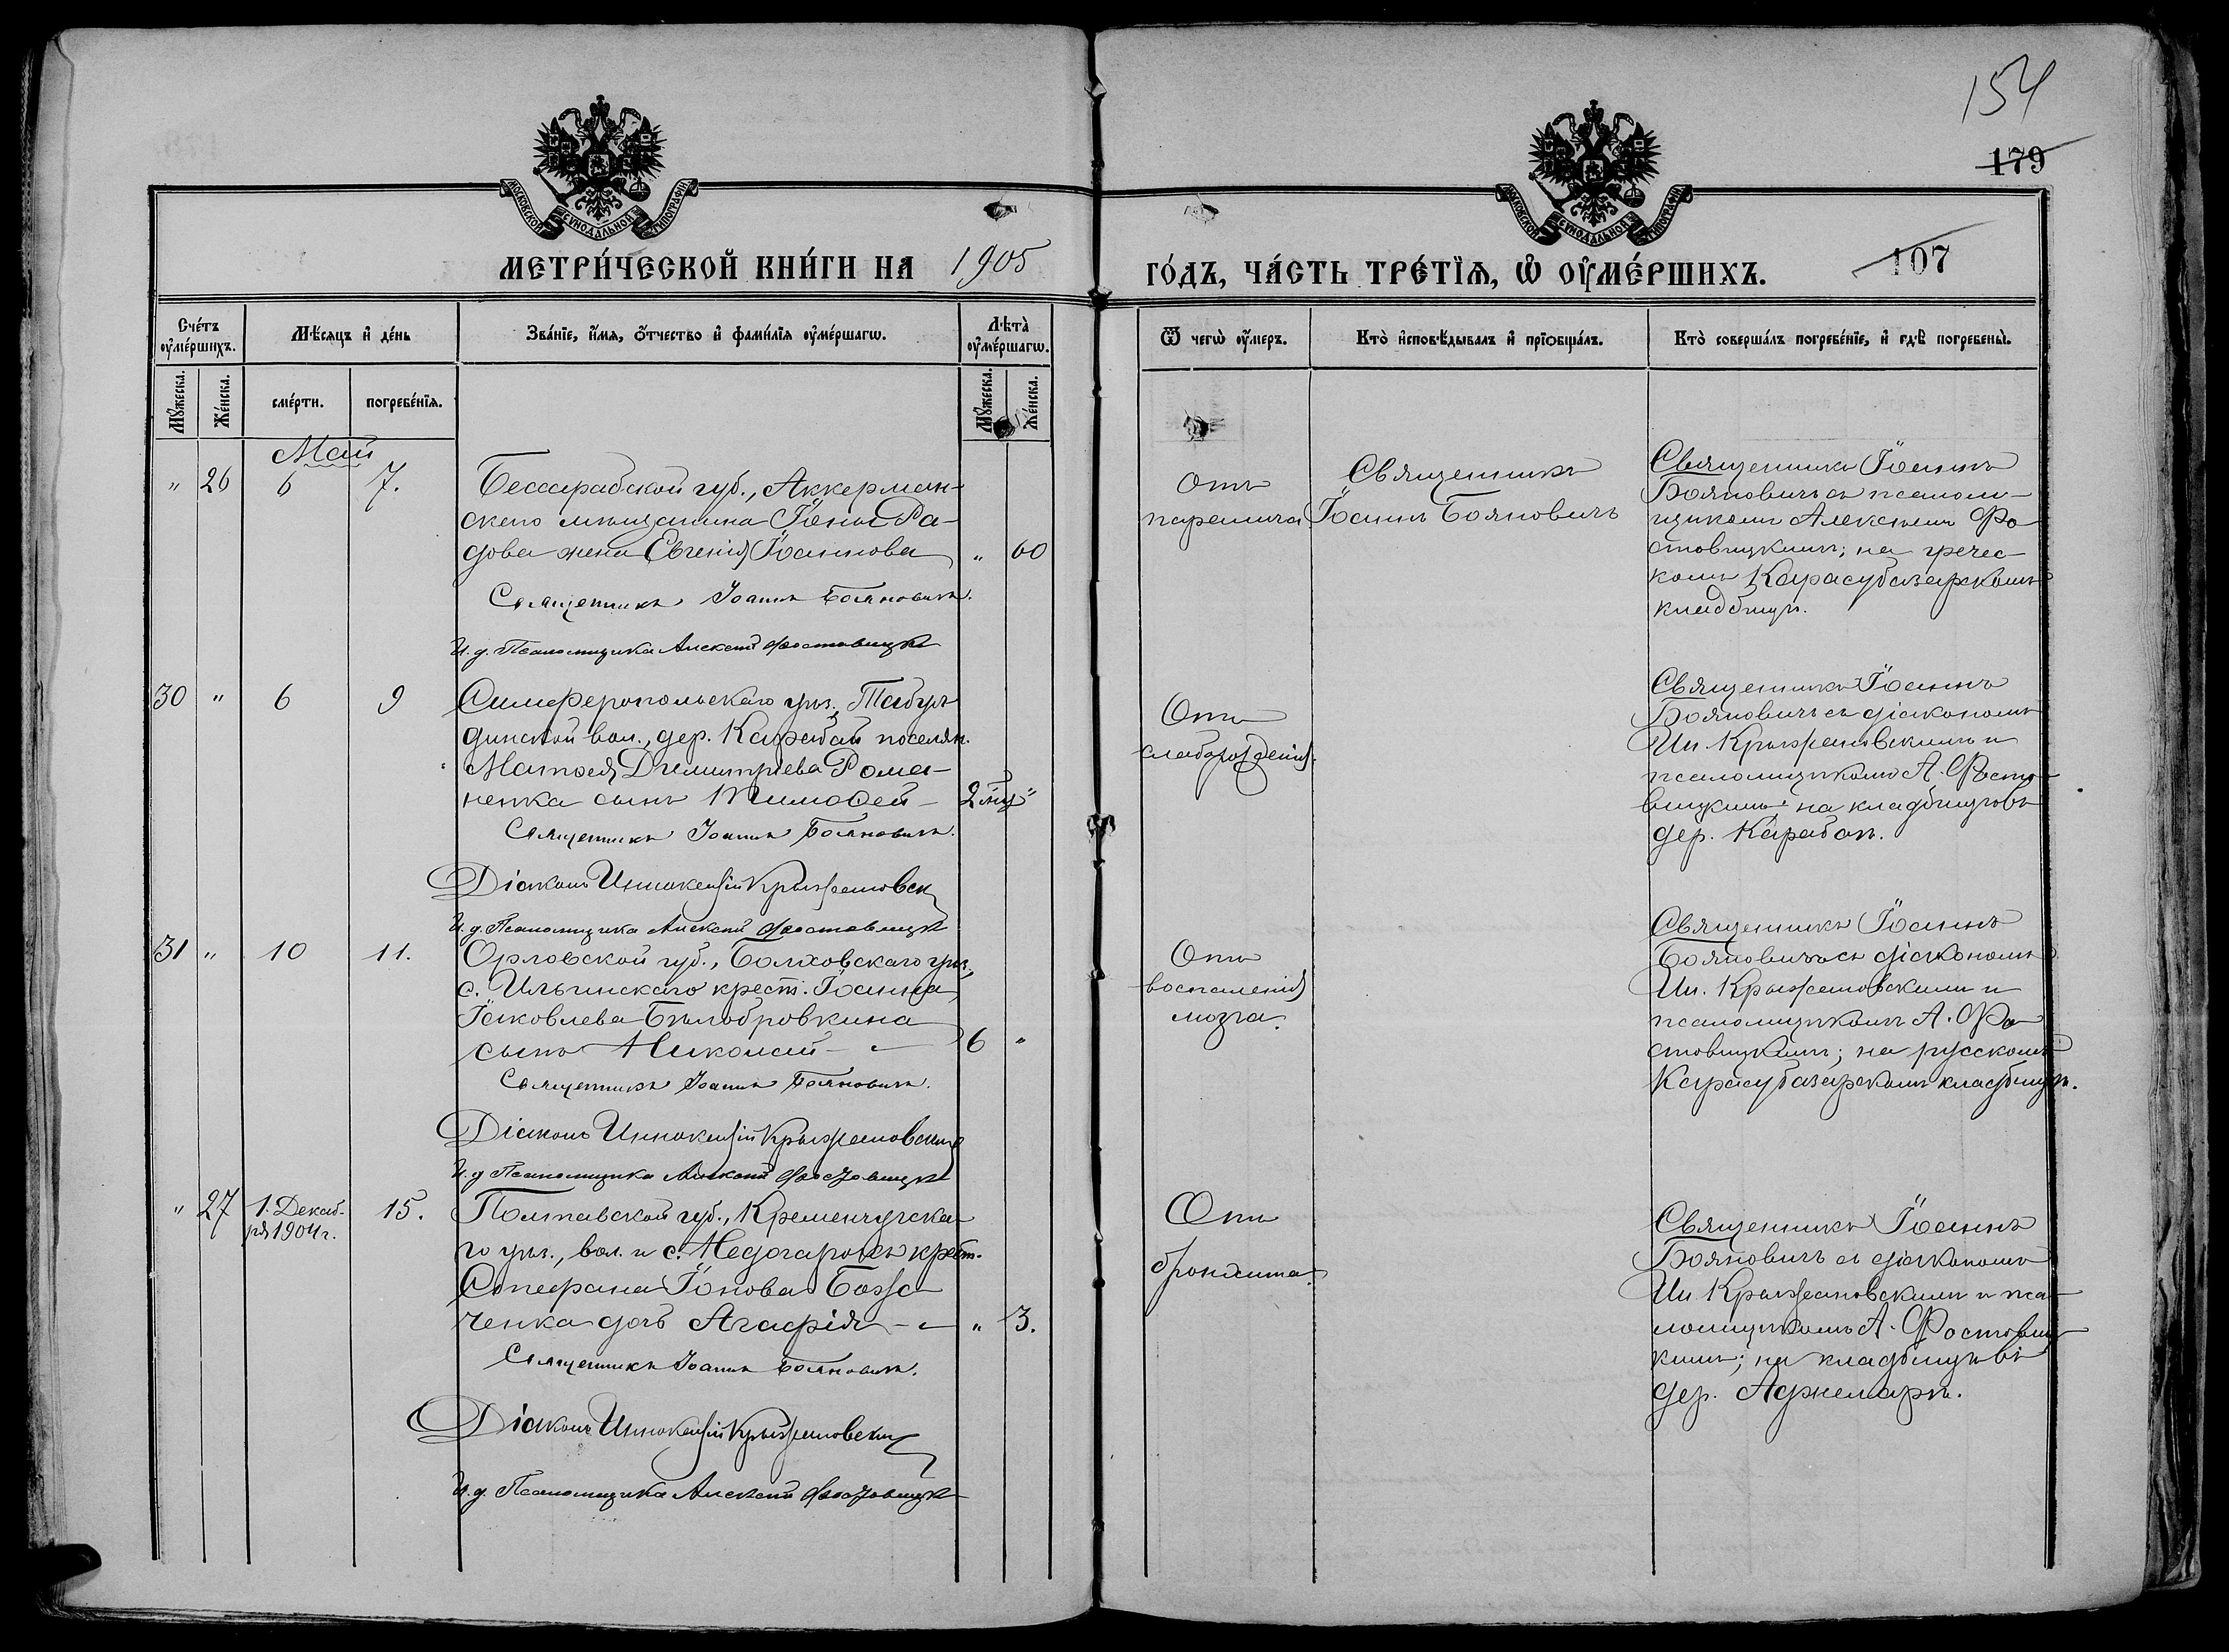 154
179
107
МОСКОВСКОЙ СѴНОДАЛЬНОЙ ТИПОГРАФІИ
МОСКОВСКОЙ СѴНОДАЛЬНОЙ ТИПОГРАФІИ
МЕТРИ́ЧЕСКОЙ КНИ́ГИ НА 1905
ГО́ДЪ, ЧА́СТЬ ТРЕ́ТЇѦ, Ѡ҆ ОУ҆МЕ́РШИХЪ.
Сче́тъ оу҆ме́ршихъ.
Мѣ́сяцъ и҆ де́нь
Зва́нїе, и҆́мя, ѻ҆́тчество и҆ фами́лїя оу҆ме́ршагѡ.
Лѣ́та оу҆ме́ршагѡ.
Ѿ чегѡ̀ оу҆́меръ.
Кто̀ и҆сповѣ́дывалъ и҆ прїѻбща́лъ.
Кто̀ соверша́лъ погребе́нїе, и҆ гдѣ̀ погребены̀.
Мꙋ́жеска.
Же́нска.
сме́рти.
погребе́нїя.
Мꙋ́жеска.
Же́нска.
Май
" 26 6 7.
Бессарабской губ., Аккерман-
скаго мѣщанина Іоны Ра-
дова жена Евгенія Іоаннова " 60
Священникъ Іоаннъ Бояновичъ.
И. д. Псаломщика Алексѣй Фостовицкій
Отъ
паралича
Священникъ
Іоаннъ Бояновичъ
Священникъ Іоаннъ
Бояновичъ съ псалом-
щикомъ Алексѣемъ Фо-
стовицкимъ; на гречес-
комъ Карасубазарскомъ
кладбищѣ.
30 " 6 9
Симферопольскаго уѣз., Табул-
динской вол., дер. Карабай поселян.
Матвея Димитріева Рома-
ненка сынъ Тимоѳей – 2 мц "
Священникъ Іоаннъ Бояновичъ.
Діаконъ Иннокентій Крыжановскій
И. д. Псаломщика Алексѣй Фостовицкій
Отъ
слаборожденія.
Священникъ Іоаннъ
Бояновичъ съ діакономъ
Ин. Крыжановскимъ и
псаломщикомъ А. Фосто-
вицкимъ; на кладбищѣ въ
дер. Карабаѣ.
31 " 10 11.
Орловской губ., Болховскаго уѣз.,
с. Ильинскаго крест. Іоанна
Іаковлева Бѣлобровкина
сынъ Николай – 6 "
Священникъ Іоаннъ Бояновичъ.
Діаконъ Иннокентій Крыжановскій
И. д. Псаломщика Алексѣй Фостовицкій
Отъ
воспаленія
мозга.
Священникъ Іоаннъ
Бояновичъ съ діакономъ
Ин. Крыжановскимъ и
псаломщикомъ А. Фо-
стовицкимъ; на русскомъ
Карасубазарскомъ кладбищѣ.
" 27 1. Декаб- 15.
ря 1904 г.
Полтавской губ., Кременчугска-
го уѣз., вол. и с. Недогарокъ крест.
Стефана Іонова Божа-
ченка дочь Агафія – " 3.
Священникъ Іоаннъ Бояновичъ.
Діаконъ Иннокентій Крыжановскій
И. д. Псаломщика Алексѣй Фостовицкій
Отъ
бронхита.
Священникъ Іоаннъ
Бояновичъ съ діакономъ
Ин. Крыжановскимъ и пса-
ломщикомъ А. Фостовиц-
кимъ; на кладбищѣ въ
дер. Аджемаръ.